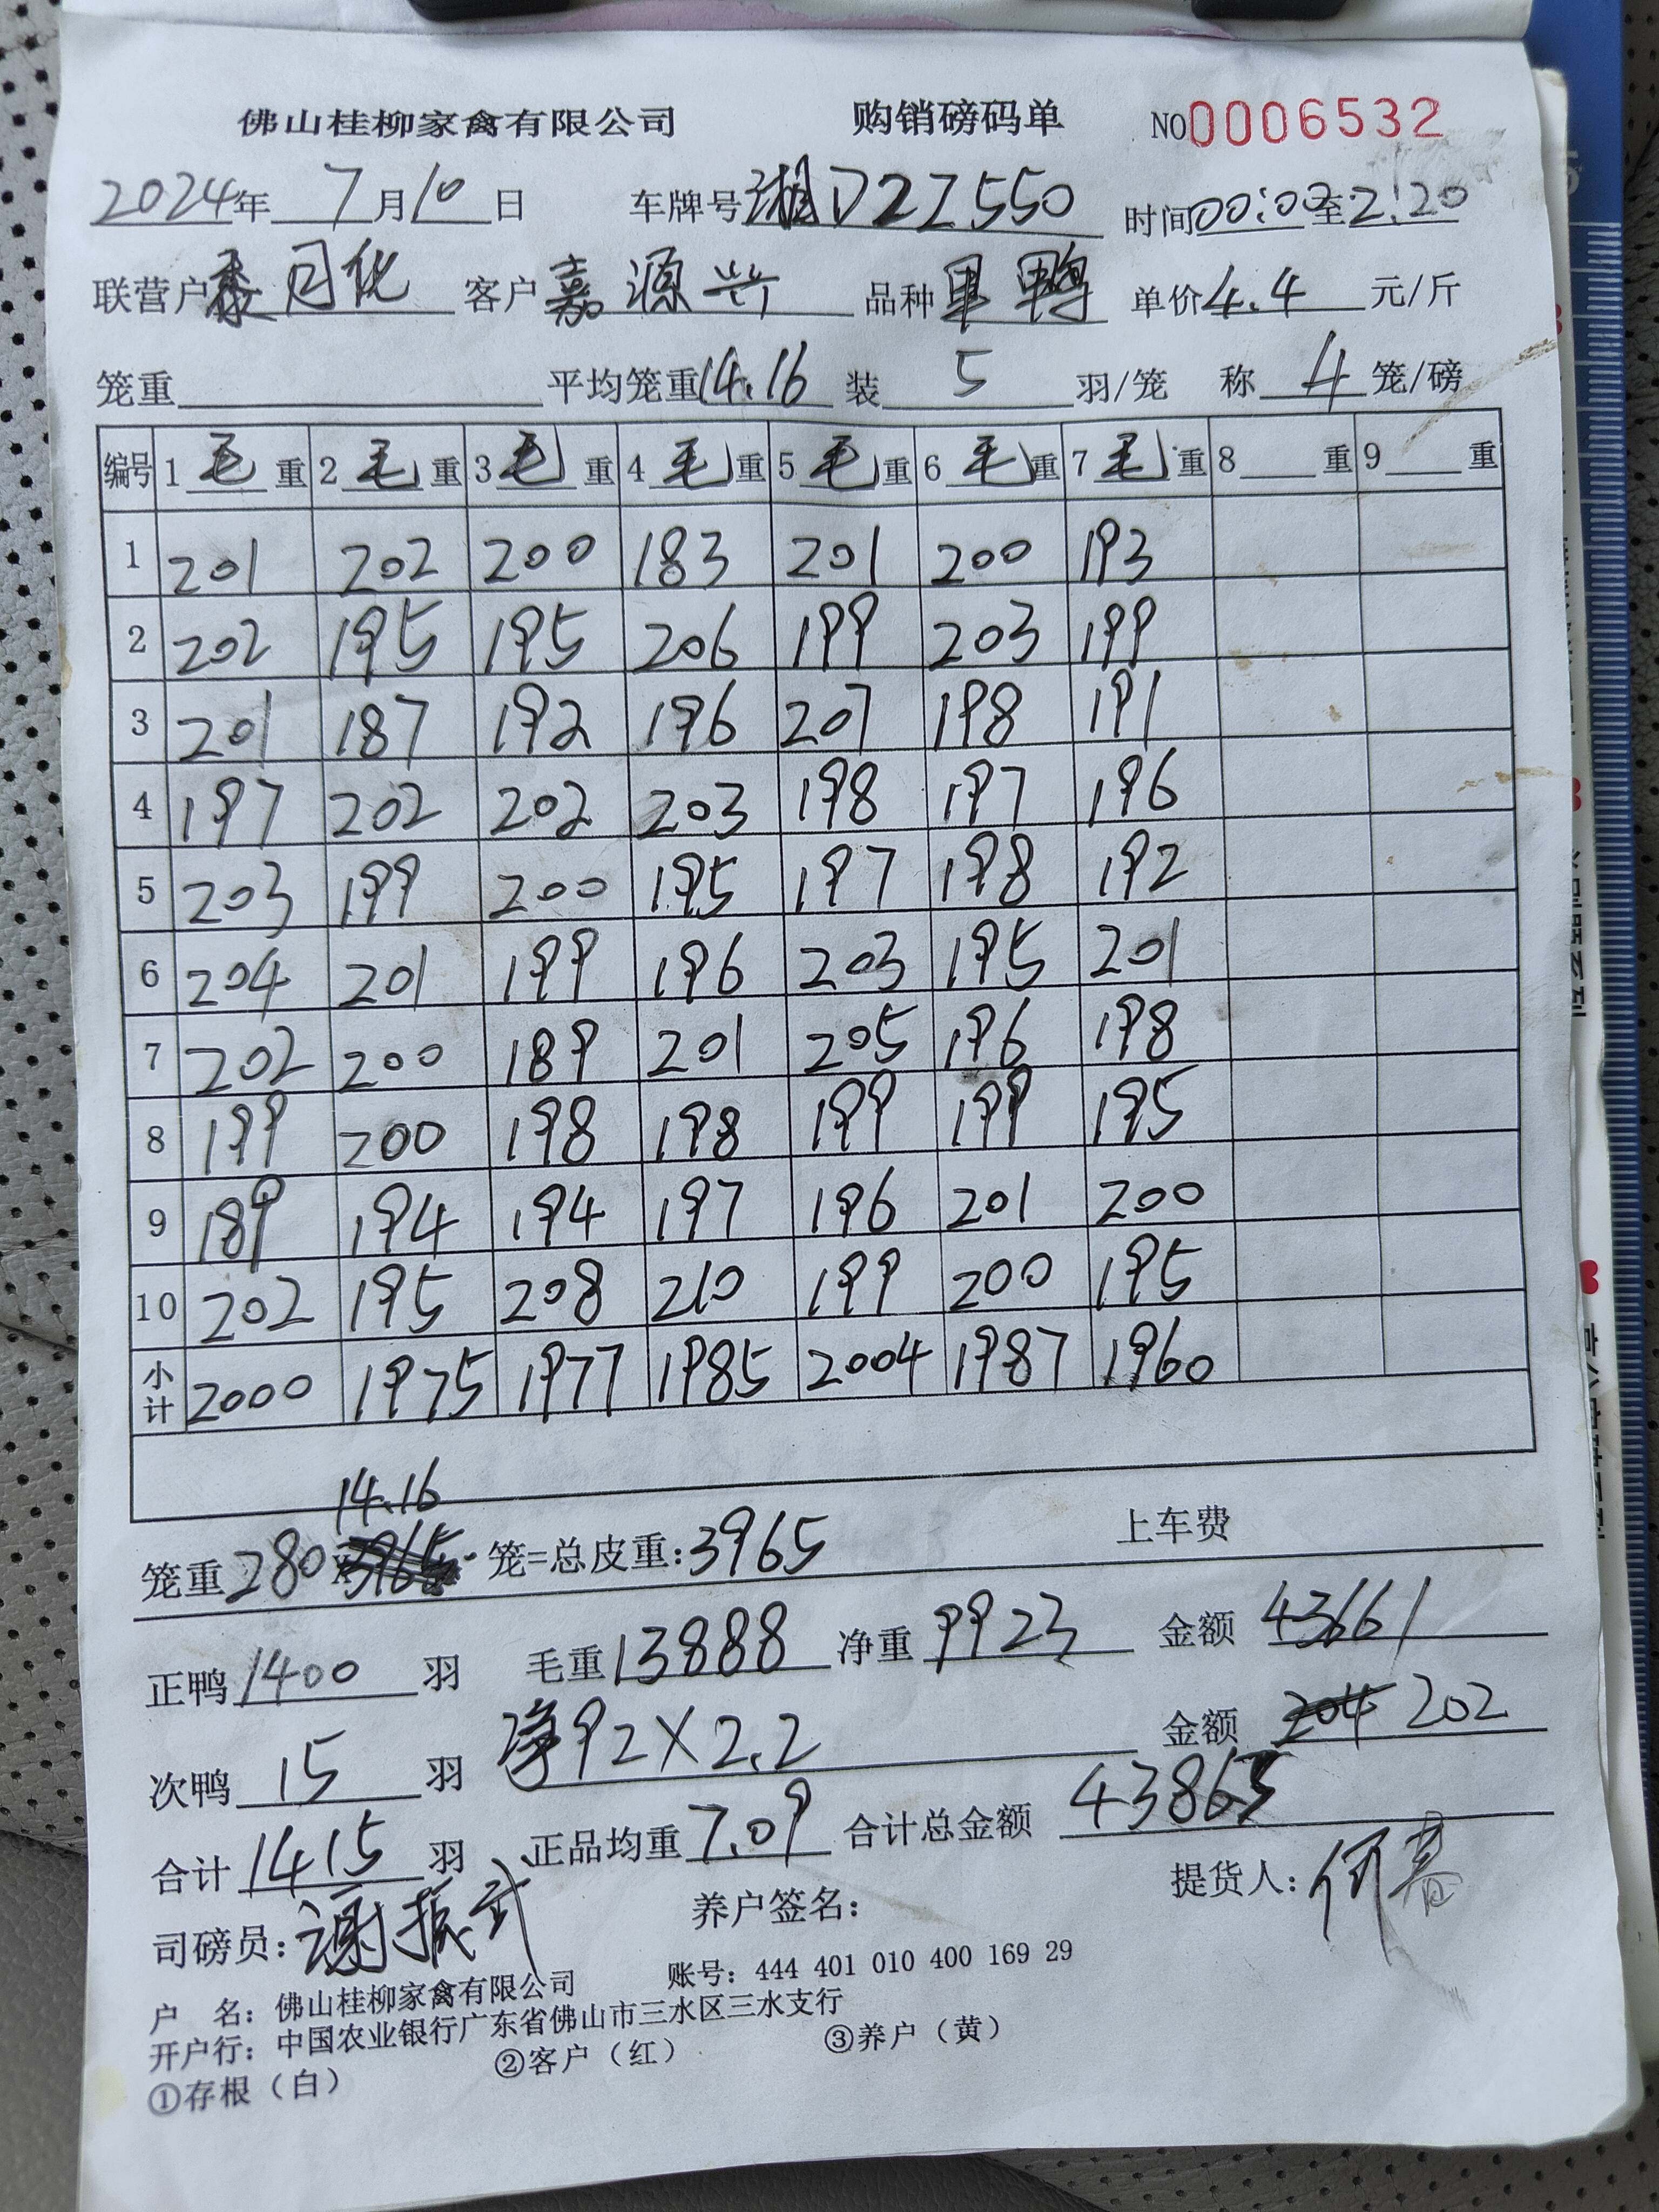 佛山桂柳家禽有限公司 购销磅码单 NO0006532
2024年 7月10日 车牌号 湘D2Z550 时间00:00至2:20
联营户 客户 嘉源兴 品种 鸭 单价4.4元/斤
笼重 平均笼重14.16 装 5 羽/笼 称 4 笼/磅
编号 1毛重 2毛重 3毛重 4毛重 5毛重 6毛重 7毛重 8重 9重
1 201 202 200 183 201 200 193
2 202 195 195 206 199 203 199
3 201 187 192 196 207 198 191
4 197 202 202 203 198 197 196
5 203 199 200 195 197 198 192
6 204 201 199 196 203 195 201
7 202 200 189 201 205 196 198
8 199 200 198 198 199 199 195
9 189 194 194 197 196 201 200
10 202 195 208 210 199 200 195
小计 2000 1975 1977 1985 2004 1987 1960
14.16
笼重280 笼=总皮重:3965 上车费
正鸭1400羽 毛重13888 净重9923 金额43661
次鸭15羽 净92×2.2 金额 204 202
合计1415羽 正品均重7.09 合计总金额 43863
司磅员:谢振武 养户签名: 提货人:何春
户 名:佛山桂柳家禽有限公司 账号:444 401 010 400 169 29
开户行:中国农业银行广东省佛山市三水区三水支行
①存根(白) ②客户(红) ③养户(黄)